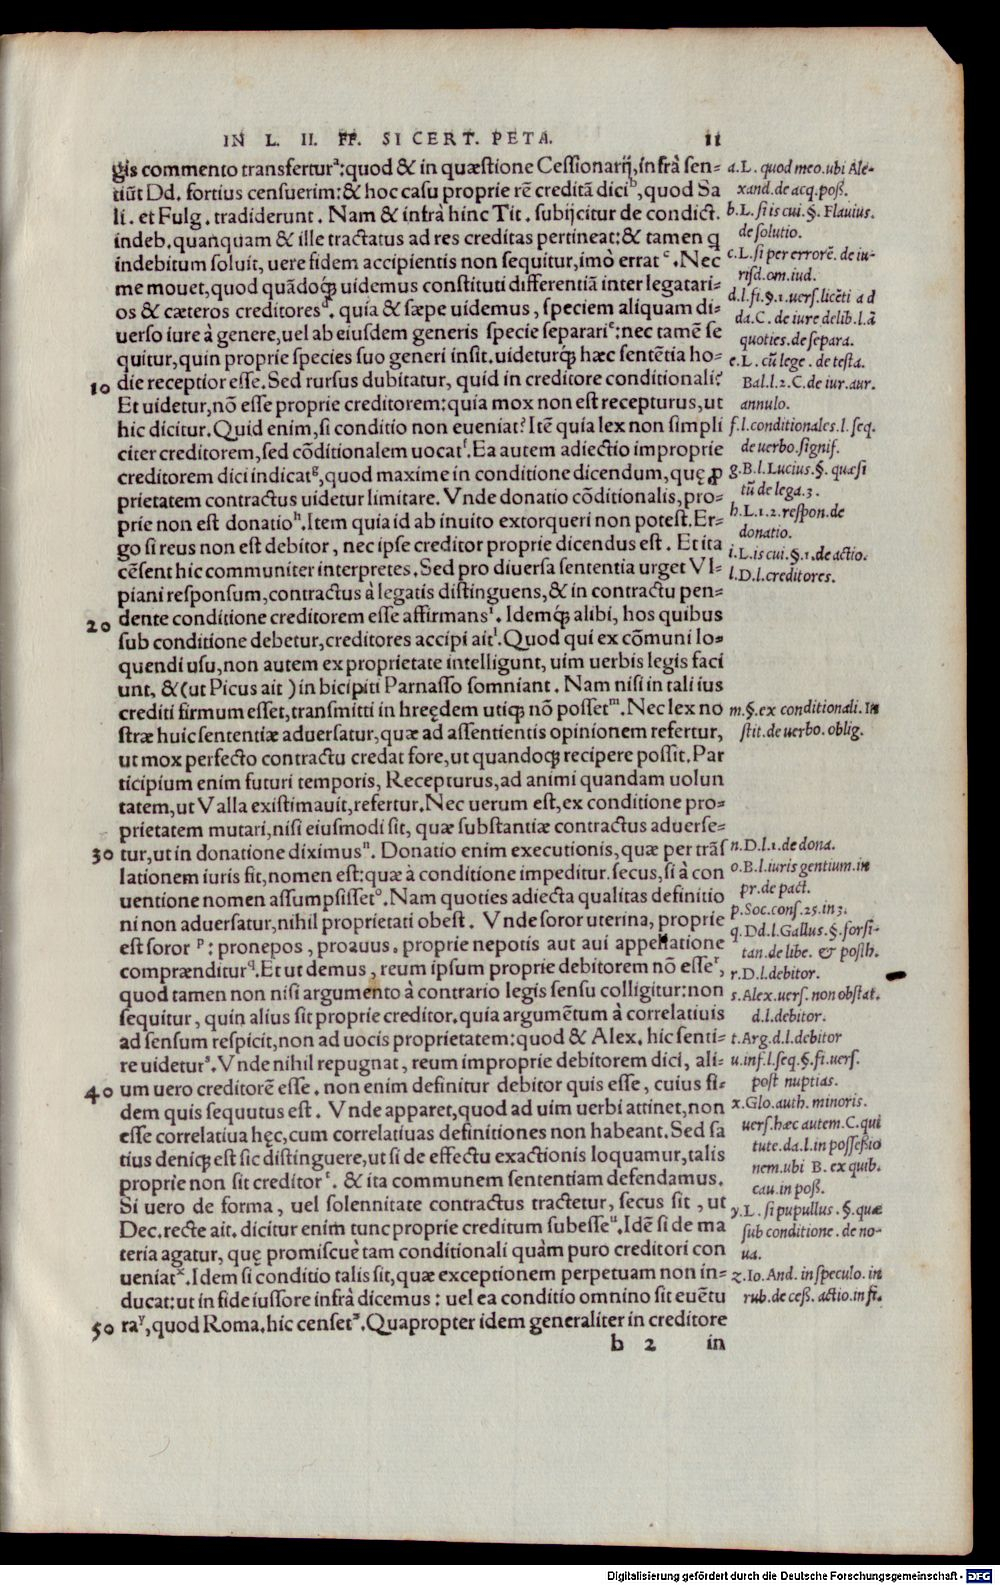 IN L. II. FF. SI CERT. PETA. 11
gis commento transferturᵃ: quod & in quæstione Cessionarij, infrà sen-
tiũt Dd. fortius censuerim: & hoc casu proprie rẽ creditã diciᵇ, quod Sa
li. et Fulg. tradiderunt. Nam & infrà hinc Tit. subijcitur de condict.
indeb. quanquam & ille tractatus ad res creditas pertineat: & tamen q
indebitum soluit, uere fidem accipientis non sequitur, imò erratᶜ. Nec
me mouet, quod quãdoq́; uidemus constituti differentiã inter legatari-
os & cæteros creditoresᵈ. quia & sæpe uidemus, speciem aliquam di-
uerso iure à genere, uel ab eiusdem generis specie separariᵉ: nec tamẽ se
quitur, quin proprie species suo generi insit. uideturq́; hæc sentẽtia ho-
10 die receptior esse. Sed rursus dubitatur, quid in creditore conditionali?
Et uidetur, nõ esse proprie creditorem: quia mox non est recepturus, ut
hic dicitur. Quid enim, si conditio non eueniat? Itẽ quia lex non simpli
citer creditorem, sed cõditionalem uocatᶠ. Ea autem adiectio improprie
creditorem dici indicatᵍ, quod maxime in conditione dicendum, quę ꝓ
prietatem contractus uidetur limitare. Vnde donatio cõditionalis, pro-
prie non est donatioʰ. Item quia id ab inuito extorqueri non potest. Er-
go si reus non est debitor, nec ipse creditor proprie dicendus est. Et ita
cẽsent hic communiter interpretes. Sed pro diuersa sententia urget Vl-
piani responsum, contractus à legatis distinguens, & in contractu pen-
20 dente conditione creditorem esse affirmansⁱ. Idemq́; alibi, hos quibus
sub conditione debetur, creditores accipi aitˡ. Quod qui ex cõmuni lo-
quendi usu, non autem ex proprietate intelligunt, uim uerbis legis faci
unt, & (ut Picus ait) in bicipiti Parnasso somniant. Nam nisi in tali ius
crediti firmum esset, transmitti in hręedem utiq; nõ possetᵐ. Nec lex no
stræ huic sententiæ aduersatur, quæ ad assentientis opinionem refertur,
ut mox perfecto contractu credat fore, ut quandoq; recipere possit. Par
ticipium enim futuri temporis, Recepturus, ad animi quandam uolun
tatem, ut Valla existimauit, refertur. Nec uerum est, ex conditione pro-
prietatem mutari, nisi eiusmodi sit, quæ substantiæ contractus aduerse-
30 tur, ut in donatione diximusⁿ. Donatio enim executionis, quæ per trãs
lationem iuris fit, nomen est: quæ à conditione impeditur. secus, si à con
uentione nomen assumpsissetᵒ. Nam quoties adiecta qualitas definitio
ni non aduersatur, nihil proprietati obest. Vnde soror uterina, proprie
est soror ᵖ: pronepos, proauus, proprie nepotis aut aui appellatione
comprænditur𐞥. Et ut demus, reum ipsum proprie debitorem nõ esseʳ,
quod tamen non nisi argumento à contrario legis sensu colligitur: non
sequitur, quin alius sit proprie creditor. quia argumẽtum à correlatiuis
ad sensum respicit, non ad uocis proprietatem: quod & Alex. hic senti-
re uideturˢ. Vnde nihil repugnat, reum improprie debitorem dici, ali-
40 um uero creditorẽ esse. non enim definitur debitor quis esse, cuius fi-
dem quis sequutus est. Vnde apparet, quod ad uim uerbi attinet, non
esse correlatiua hęc, cum correlatiuas definitiones non habeant. Sed sa
tius deniq; est sic distinguere, ut si de effectu exactionis loquamur, talis
proprie non sit creditorᵗ. & ita communem sententiam defendamus.
Si uero de forma, uel solennitate contractus tractetur, secus sit, ut
Dec. recte ait. dicitur enim tunc proprie creditum subesseᵘ. Idẽ si de ma
teria agatur, quę promiscuè tam conditionali quàm puro creditori con
ueniatˣ. Idem si conditio talis sit, quæ exceptionem perpetuam non in-
ducat: ut in fideiussore infrà dicemus: uel ea conditio omnino sit euẽtu
50 raʸ, quod Roma. hic censetᶻ. Quapropter idem generaliter in creditore
b 2 in
a. L. quod meo. ubi Ale-
xand. de acq. poß.
b. L. si is cui. §. Flauius.
de solutio.
c. L. si per errorẽ. de iu-
risd. om. iud.
d. l. fi. §. 1. uers. licẽti a d
da. C. de iure delib. l. ã
quoties. de separa.
e. L. cũ lege. de testa.
Bal. l. 2. C. de iur. aur.
annulo.
f. l. conditionales. l. seq.
de uerbo. signif.
g. B. l. Lucius. §. quæsi
tũ de lega. 3.
h. L. 1. 2. respon. de
donatio.
i. L. is cui. §. 1. de actio.
l. D. l. creditores.
m. §. ex conditionali. In
stit. de uerbo. oblig.
n. D. l. 1. de dona.
o. B. l. iuris gentium. in
pr. de pact.
p. Soc. cons. 25. in 3.
q. Dd. l. Gallus. §. forsi-
tan. de libe. & posth.
r. D. l. debitor.
s. Alex. uers. non obstat.
d. l. debitor.
t. Arg. d. l. debitor
u. inf. l. seq. §. fi. uers.
post nuptias.
x. Glo. auth. minoris.
uers. hæc autem. C. qui
tute. da. l. in possessio
nem. ubi B. ex quib.
cau. in poß.
y. L. si pupullus. §. quæ
sub conditione. de no-
ua.
z. Io. And. in speculo. in
rub. de ceß. actio. in fi.
Digitalisierung gefördert durch die Deutsche Forschungsgemeinschaft - DFG